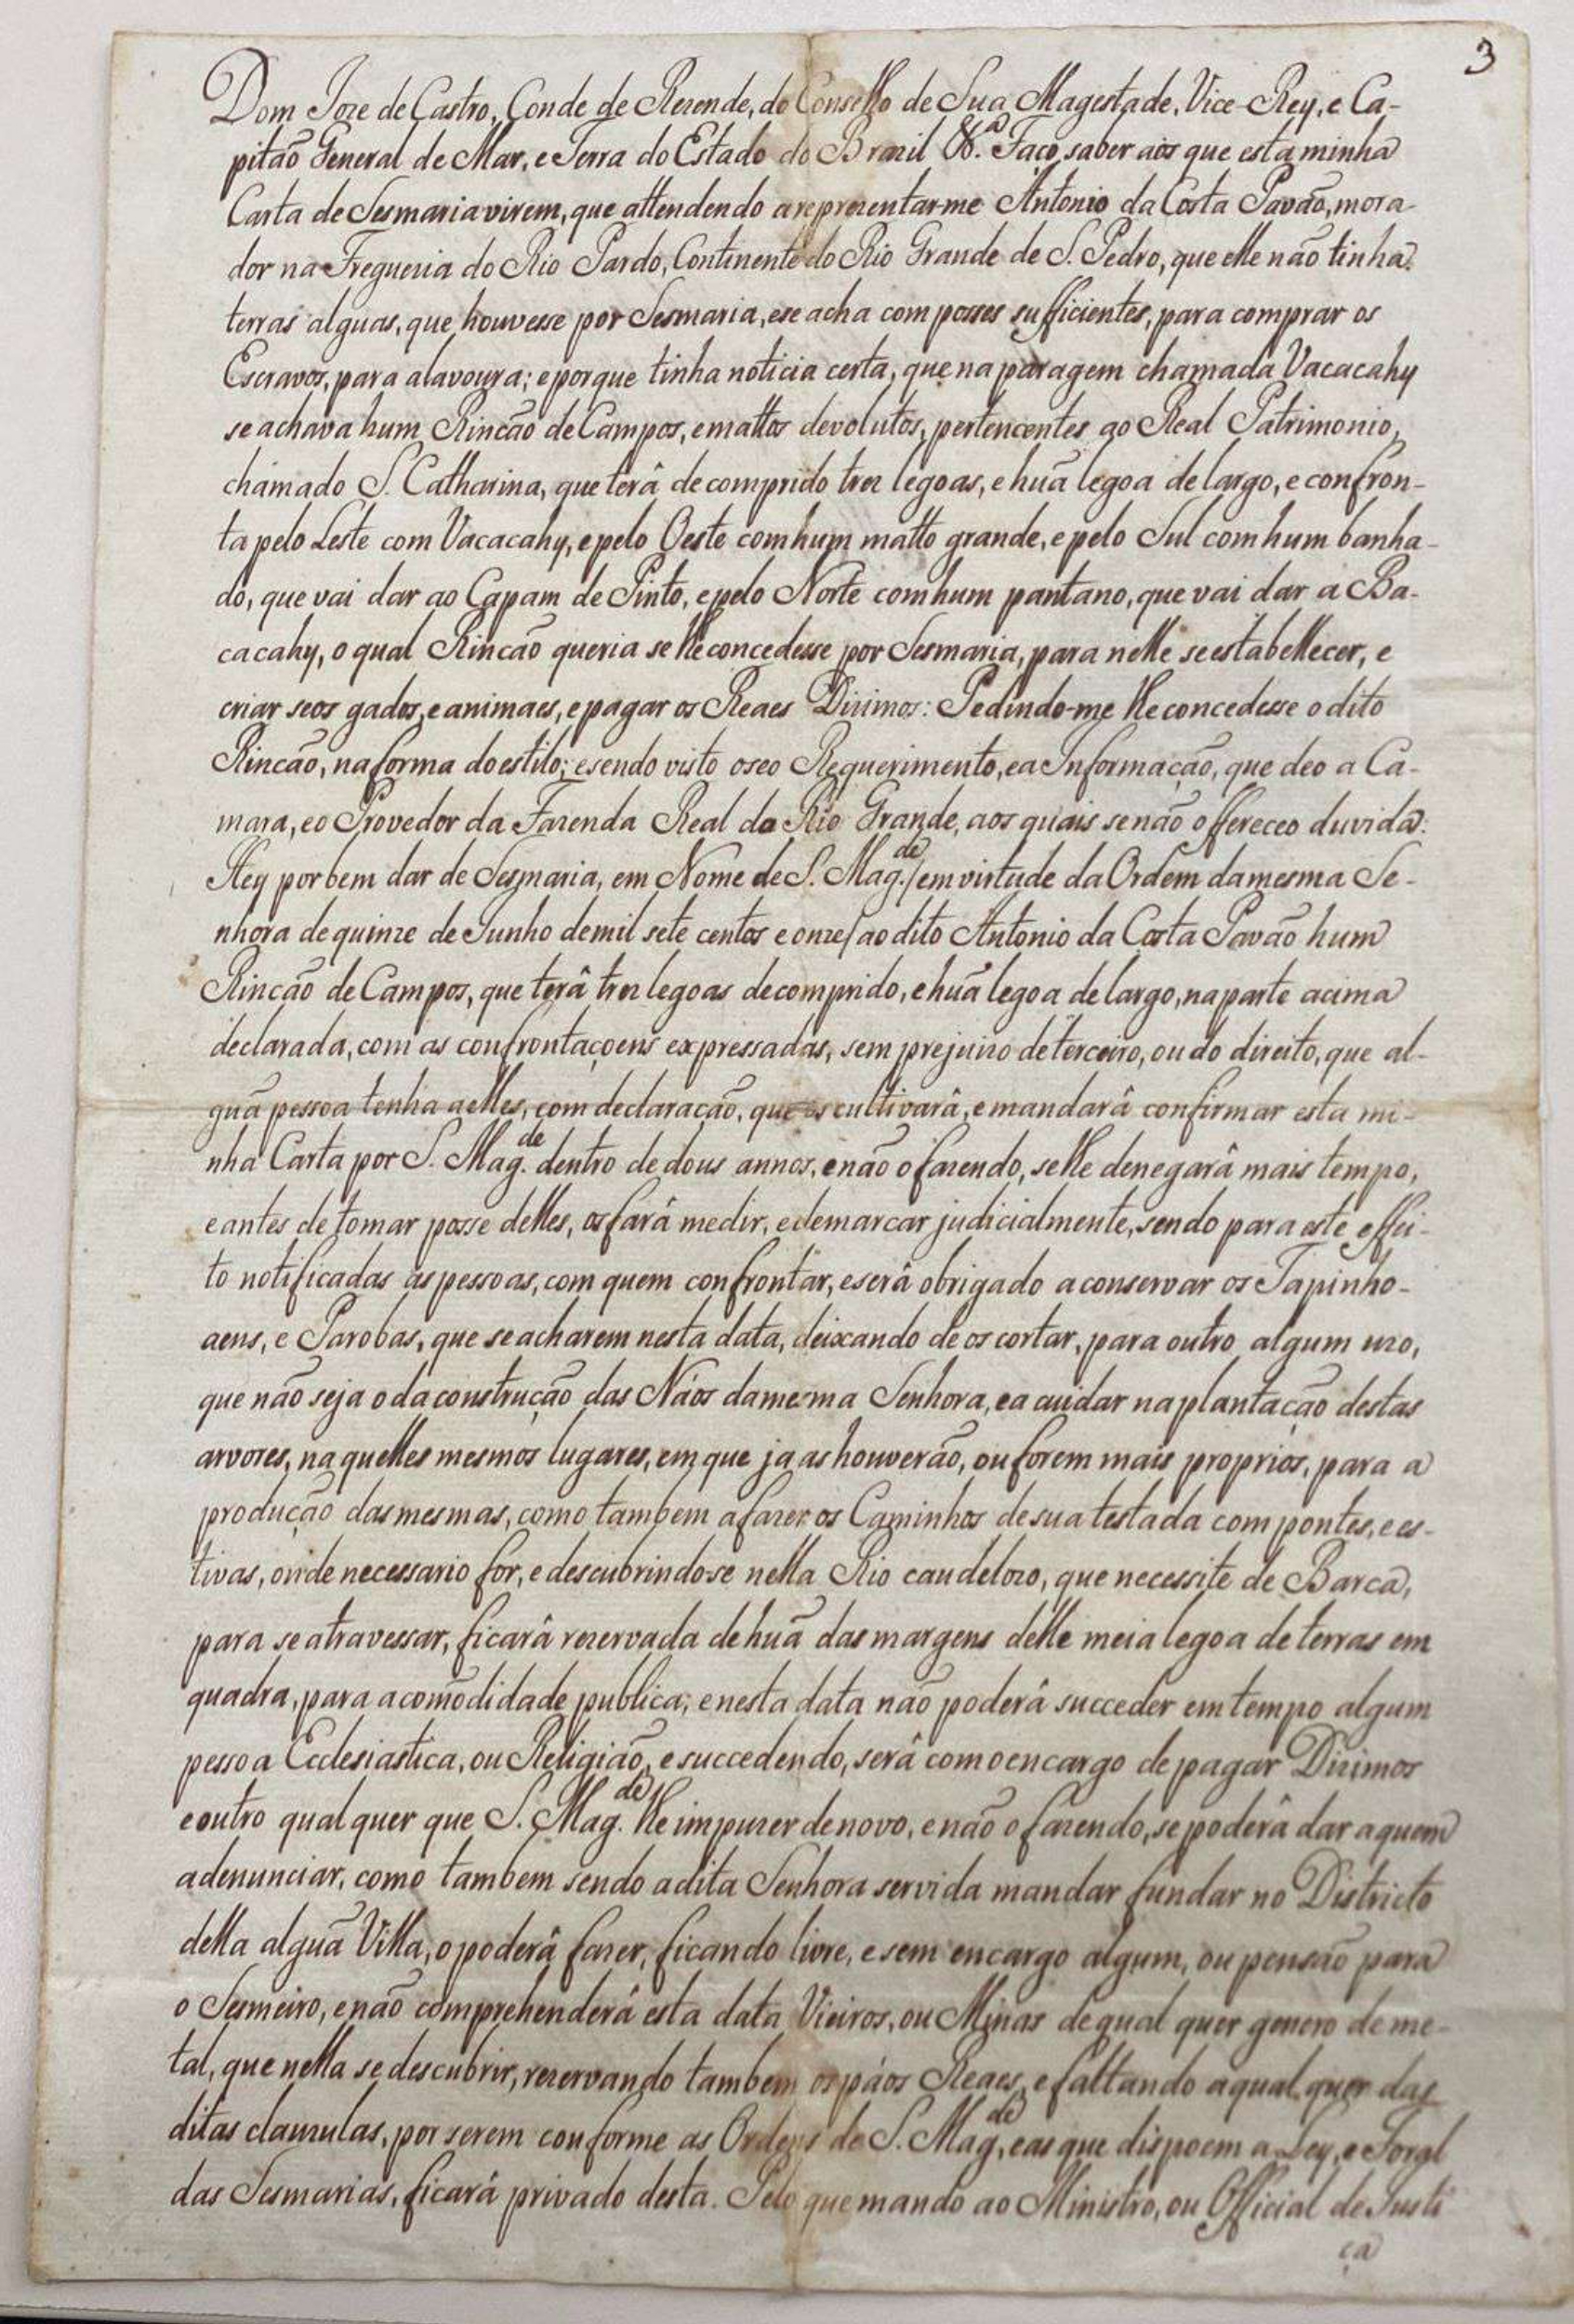 3
Dom Joze de Castro, Conde de Rezende, do Conselho de Sua Magestade, Vice-Rey, e Ca-
pitaõ General de Mar, e Terra do Estado do Brazil &.ª Faço saber aos que esta minha
Carta de Sesmaria virem, que attendendo a reprezentar-me Antonio da Costa Pavaõ, mora-
dor na Freguezia do Rio Pardo, Continente do Rio Grande de S. Pedro, que elle naõ tinha
terras alguas, que houvesse por Sesmaria, e se acha com posses sufficientes, para comprar os
Escravos, para a lavoura; e porque tinha noticia certa, que na paragem chamada Vacacahy
se achava hum Rincaõ de Campos, e mattos devolutos, pertencentes ao Real Patrimonio,
chamado S. Catharina, que terâ de comprido trez legoas, e huã legoa de largo, e confron-
ta pelo Leste com Vacacahy, e pelo Oeste com hum matto grande, e pelo Sul com hum banha-
do, que vai dar ao Capam de Pinto, e pelo Norte com hum pantano, que vai dar a Ba-
cacahy, o qual Rincaõ queria se lhe concedesse por Sesmaria, para nelle se estabellecer, e
criar seos gados, e animaes, e pagar os Reaes Dizimos: Pedindo-me lhe concedesse o dito
Rincaõ, na forma do estilo; e sendo visto o seo Requerimento, e a Informaçaõ, que deo a Ca-
mara, e o Provedor da Fazenda Real do Rio Grande, aos quais se naõ offereceo duvida:
Hey por bem dar de Sesmaria, em Nome de S. Mag.de /em virtude da Ordem da mesma Se-
nhora de quinze de Junho de mil sete centos e onze/ ao dito Antonio da Costa Pavaõ hum
Rincaõ de Campos, que terâ trez legoas de comprido, e huã legoa de largo, na parte acima
declarada, com as confrontaçoens expressadas, sem prejuizo de terceiro, ou do direito, que al-
guã pessoa tenha a elles, com declaraçaõ, que os cultivarâ, e mandarâ confirmar esta mi-
nha Carta por S. Mag.de dentro de dous annos, e naõ o fazendo, se lhe denegarâ mais tempo,
e antes de tomar posse delles, os farâ medir, e demarcar judicialmente, sendo para este effei-
to notificadas as pessoas, com quem confrontar, e serâ obrigado a conservar os Tapinho-
aens, e Parobas, que se acharem nesta data, deixando de os cortar, para outro algum uzo,
que naõ seja o da construçaõ das Náos da mesma Senhora, e a cuidar na plantaçaõ destas
arvores, naquelles mesmos lugares, em que ja as houveraõ, ou forem mais proprios, para a
produçaõ das mesmas, como tambem a fazer os Caminhos de sua testada com pontes, e es-
tivas, onde necessario for, e descubrindo-se nella Rio caudelozo, que necessite de Barca,
para se atravessar, ficarâ rezervada de huã das margens delle meia legoa de terras em
quadra, para a comõdidade publica; e nesta data naõ poderâ succeder em tempo algum
pessoa Ecclesiastica, ou Religiaõ, e succedendo, serâ com o encargo de pagar Dizimos
e outro qual quer que S. Mag.de lhe impuzer de novo, e naõ o fazendo, se poderâ dar a quem
a denunciar, como tambem sendo a dita Senhora servida mandar fundar no Districto
della alguã Villa, o poderâ fazer, ficando livre, e sem encargo algum, ou pensaõ para
o Sesmeiro, e naõ comprehenderâ esta data Vieiros, ou Minas de qual quer genero de me-
tal, que nella se descubrir, rezervando tambem os páos Reaes, e faltando a qual quer das
ditas clauzulas, por serem conforme as Ordens de S. Mag.de, e as que dispoem a Ley, e Foral
das Sesmarias, ficarâ privado desta. Pelo que mando ao Ministro, ou Official de Justi
ça